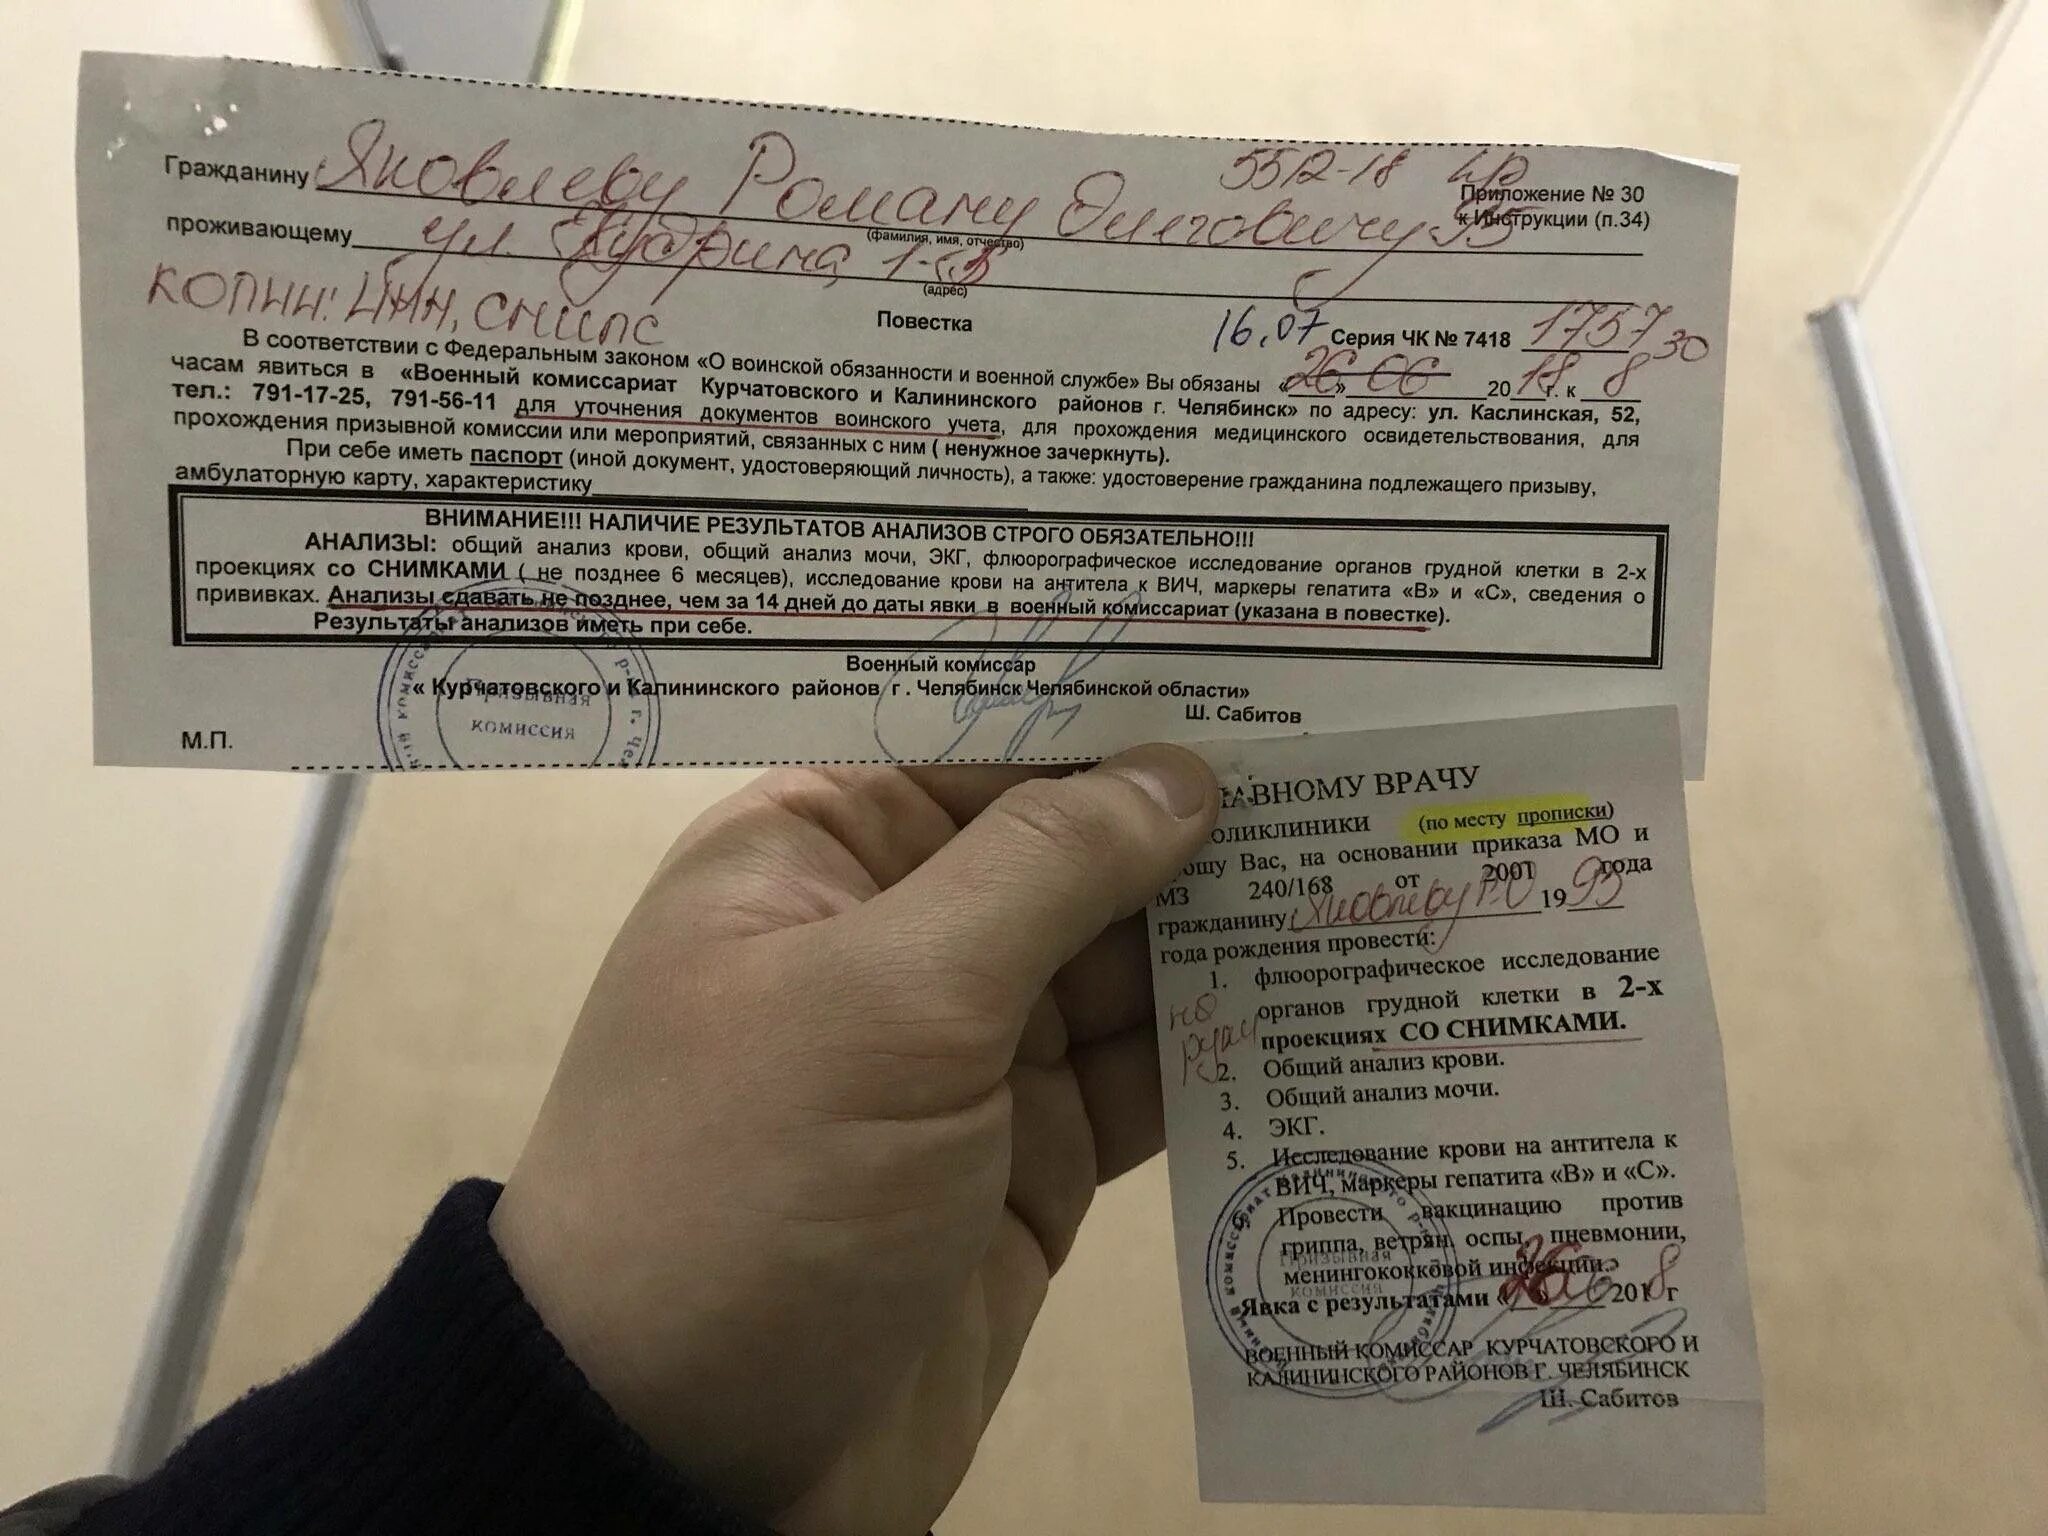 5512-18
Приложение № 30
к Инструкции (п.34)
Гражданину Яковлеву Роману Олеговичу 95
(фамилия, имя, отчество)
проживающему ул. Кудрина 1-
(адрес)
КОПИИ: ИНН, СНИЛС
Повестка
16.07 Серия ЧК № 7418 1757
В соответствии с Федеральным законом «О воинской обязанности и военной службе» Вы обязаны «26» 06 2018 г. к 8 30
часам явиться в «Военный комиссариат Курчатовского и Калининского районов г. Челябинск» по адресу: ул. Каслинская, 52,
тел.: 791-17-25, 791-56-11 для уточнения документов воинского учета, для прохождения медицинского освидетельствования, для
прохождения призывной комиссии или мероприятий, связанных с ним ( ненужное зачеркнуть).
При себе иметь паспорт (иной документ, удостоверяющий личность), а также: удостоверение гражданина подлежащего призыву,
амбулаторную карту, характеристику
ВНИМАНИЕ!!! НАЛИЧИЕ РЕЗУЛЬТАТОВ АНАЛИЗОВ СТРОГО ОБЯЗАТЕЛЬНО!!!
АНАЛИЗЫ: общий анализ крови, общий анализ мочи, ЭКГ, флюорографическое исследование органов грудной клетки в 2-х
проекциях со СНИМКАМИ ( не позднее 6 месяцев), исследование крови на антитела к ВИЧ, маркеры гепатита «В» и «С», сведения о
прививках. Анализы сдавать не позднее, чем за 14 дней до даты явки в военный комиссариат (указана в повестке).
Результаты анализов иметь при себе.
Военный комиссар
« Курчатовского и Калининского районов г . Челябинск Челябинской области»
Ш. Сабитов
М.П.
Призывная
комиссия
ЛАВНОМУ ВРАЧУ
оликлиники (по месту прописки)
рошу Вас, на основании приказа МО и
МЗ 240/168 от 2001 года
гражданину Яковлеву Р.О 1995
года рождения провести:
1. флюорографическое исследование
органов грудной клетки в 2-х
проекциях СО СНИМКАМИ.
на
руки
2. Общий анализ крови.
3. Общий анализ мочи.
4. ЭКГ.
5. Исследование крови на антитела к
ВИЧ, маркеры гепатита «В» и «С».
Провести вакцинацию против
гриппа, ветрян. оспы, пневмонии,
менингококковой инфекции.
Явка с результатами «26» 06 2018 г
Призывная
комиссия
ВОЕННЫЙ КОМИССАР КУРЧАТОВСКОГО И
КАЛИНИНСКОГО РАЙОНОВ Г. ЧЕЛЯБИНСК
Ш. Сабитов